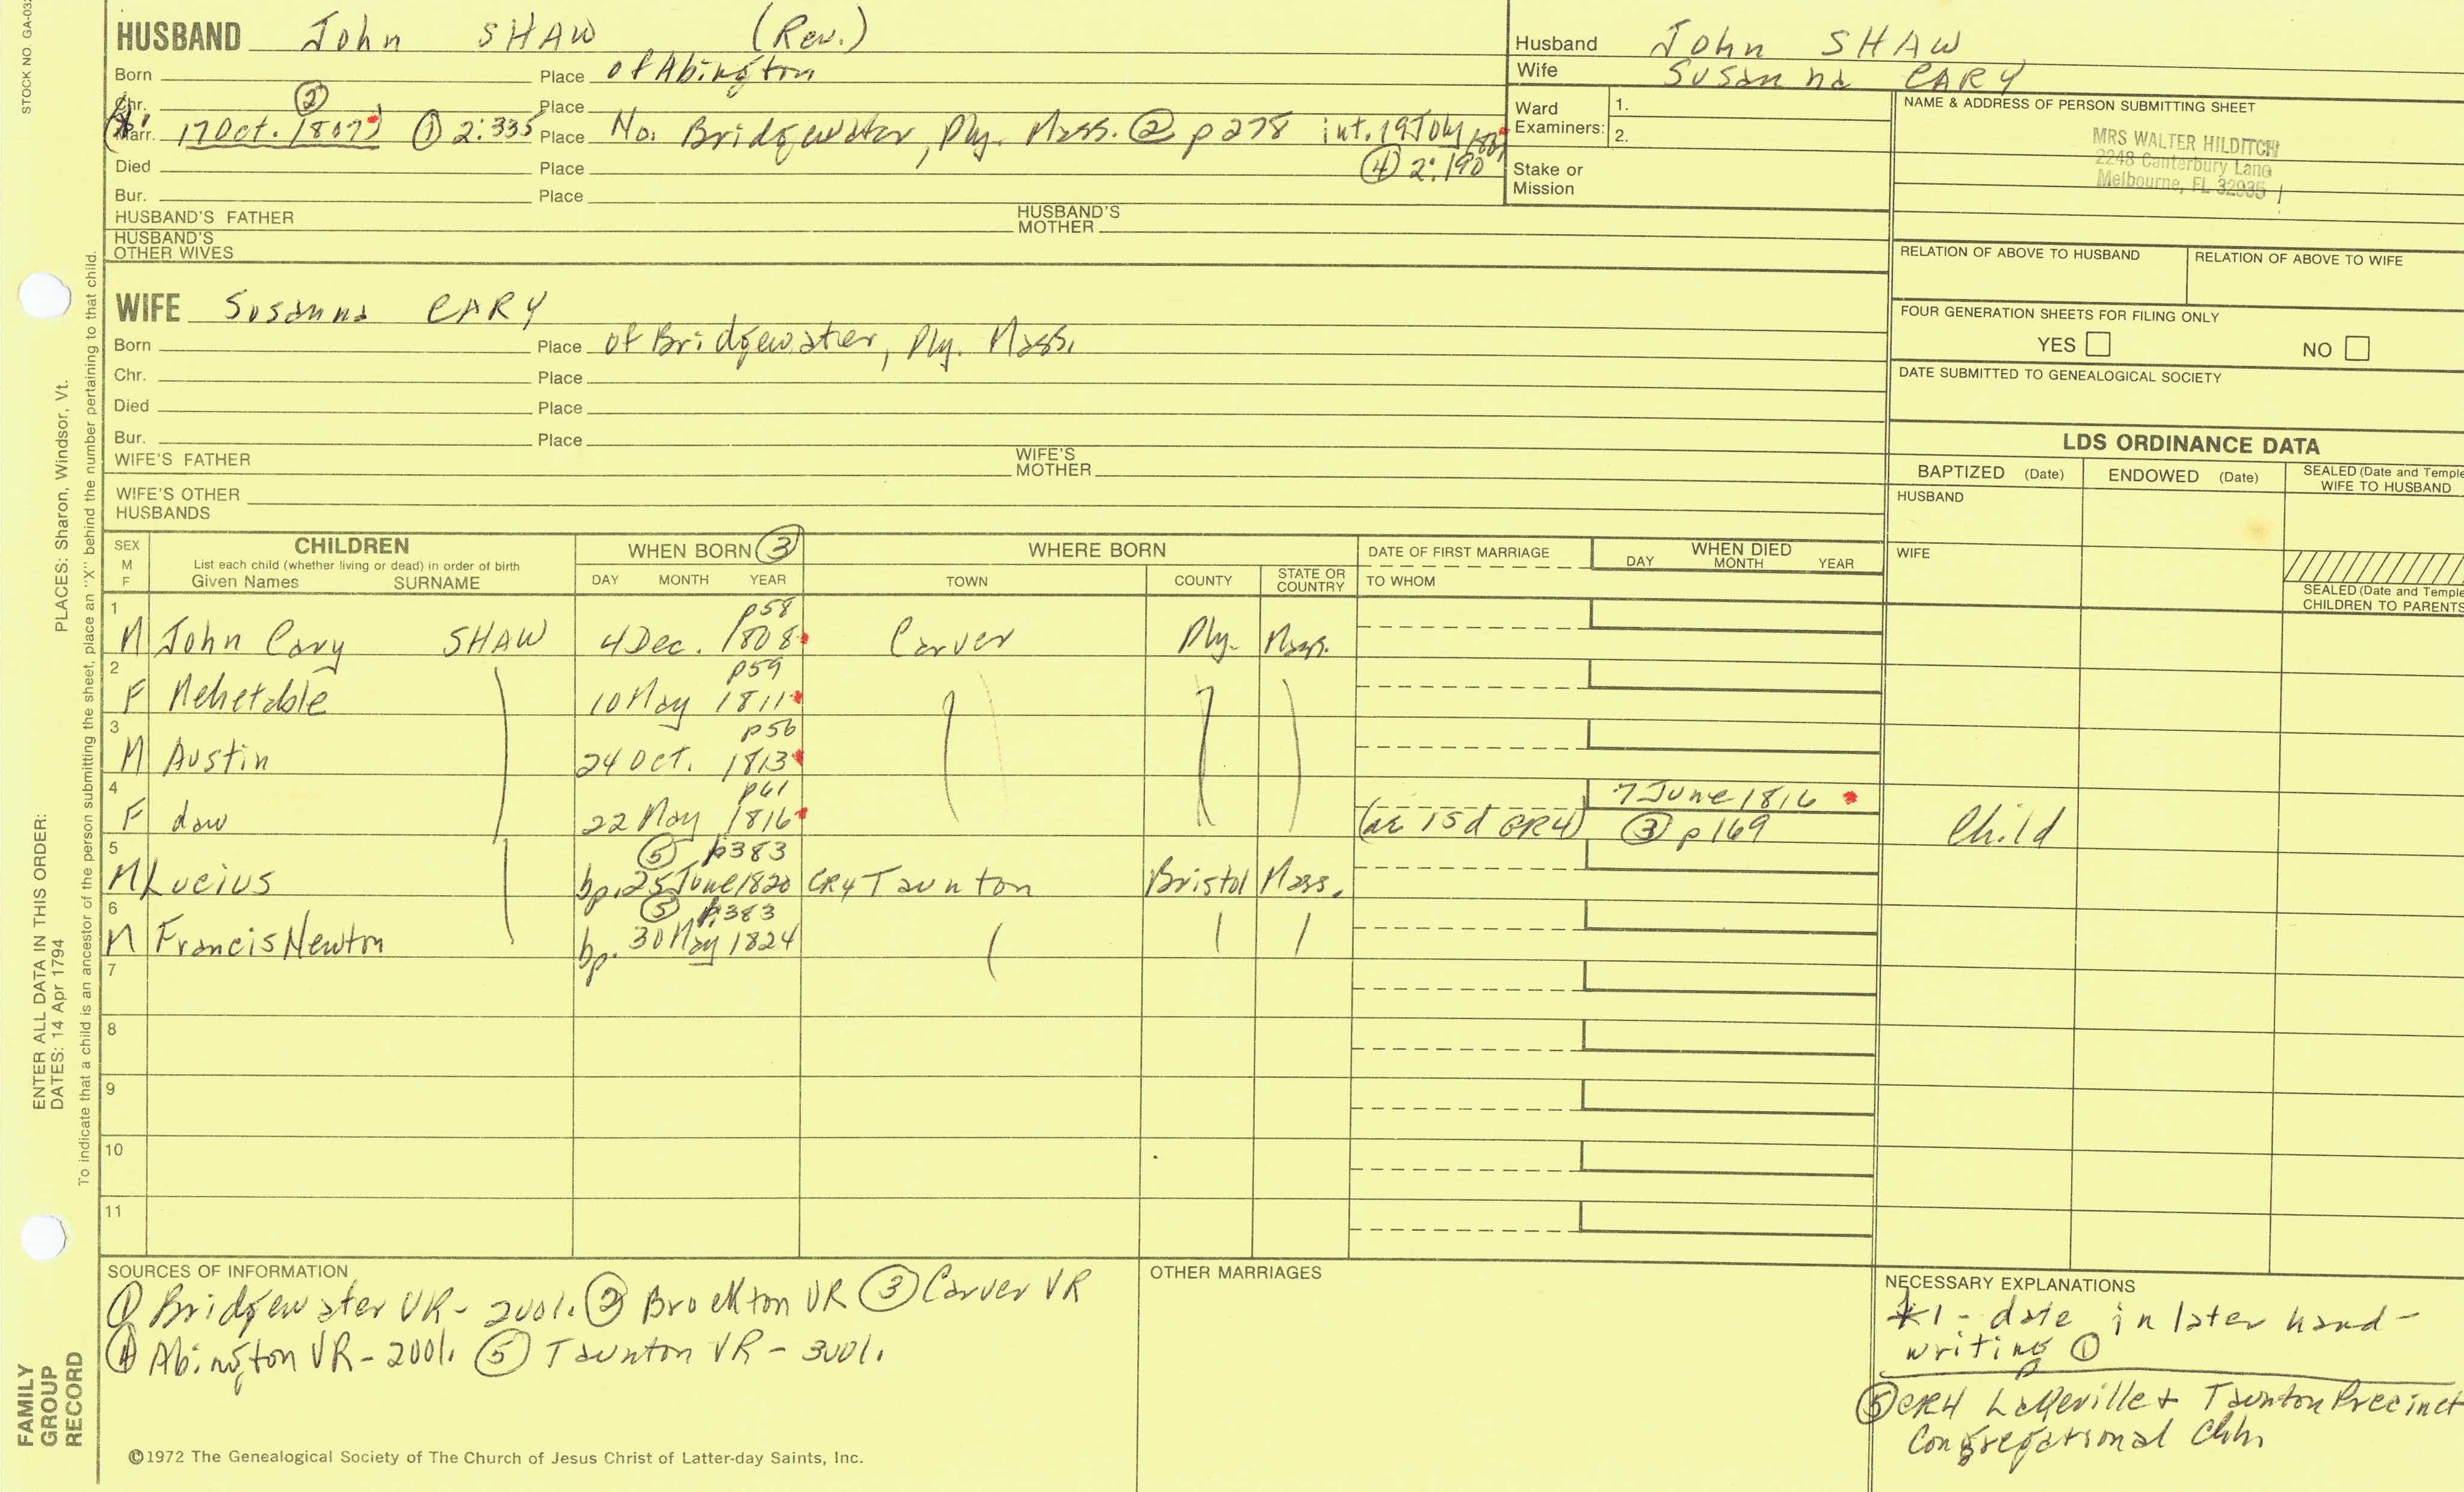 STOCK NO. GA-03
HUSBAND John SHAW (Rev.)
Born Place of Abington
Chr. ② Place
(*1 Marr. 17 Oct. 1807) ① 2:335 Place No. Bridgewater, Ply. Mass. ② p278 int. 19 July
④ 2:190
Died Place
Bur. Place
HUSBAND'S FATHER HUSBAND'S MOTHER
HUSBAND'S OTHER WIVES
Husband John SHAW
Wife Susanna CARY
Ward Examiners: 1.
2.
Stake or Mission
NAME & ADDRESS OF PERSON SUBMITTING SHEET
MRS WALTER HILDITCH
2248 Canterbury Lane
Melbourne, FL 32935
RELATION OF ABOVE TO HUSBAND RELATION OF ABOVE TO WIFE
FOUR GENERATION SHEETS FOR FILING ONLY
YES NO
DATE SUBMITTED TO GENEALOGICAL SOCIETY
WIFE Susanna CARY
Born Place of Bridgewater, Ply. Mass.
Chr. Place
Died Place
Bur. Place
WIFE'S FATHER WIFE'S MOTHER
WIFE'S OTHER HUSBANDS
LDS ORDINANCE DATA
BAPTIZED (Date) ENDOWED (Date) SEALED (Date and Temple
WIFE TO HUSBAND
HUSBAND
WIFE
SEALED (Date and Temple
CHILDREN TO PARENTS
SEX M F CHILDREN WHEN BORN ③ WHERE BORN DATE OF FIRST MARRIAGE WHEN DIED
List each child (whether living or dead) in order of birth
Given Names SURNAME DAY MONTH YEAR TOWN COUNTY STATE OR COUNTRY TO WHOM DAY MONTH YEAR
1 p58
M John Cary SHAW 4 Dec. 1808 Carver Ply. Mass.
2 p59
F Mehetable 10 May 1811
3 p56
M Austin 24 Oct. 1813
4 p61 7 June 1816
F daw 22 May 1816 (ae 15d GR4) ③ p169 Child
5 ⑤ p383
M Lucius bp. 25 June 1820 CR4 Taunton Bristol Mass.
6 ⑤ p383
M Francis Newton bp. 30 May 1824
7
8
9
10
11
SOURCES OF INFORMATION
① Bridgewater VR - 2vol. ② Brockton VR ③ Carver VR
④ Abington VR - 2vol. ⑤ Taunton VR - 3vol.
OTHER MARRIAGES
NECESSARY EXPLANATIONS
*1 - date in later hand-
writing ①
⑤ CR4 Lakeville & Taunton Precinct
Congregational Chh.
©1972 The Genealogical Society of The Church of Jesus Christ of Latter-day Saints, Inc.
FAMILY
GROUP
RECORD
ENTER ALL DATA IN THIS ORDER:
DATES: 14 Apr 1794
PLACES: Sharon, Windsor, Vt.
To indicate that a child is an ancestor of the person submitting the sheet, place an "X" behind the number pertaining to that child.